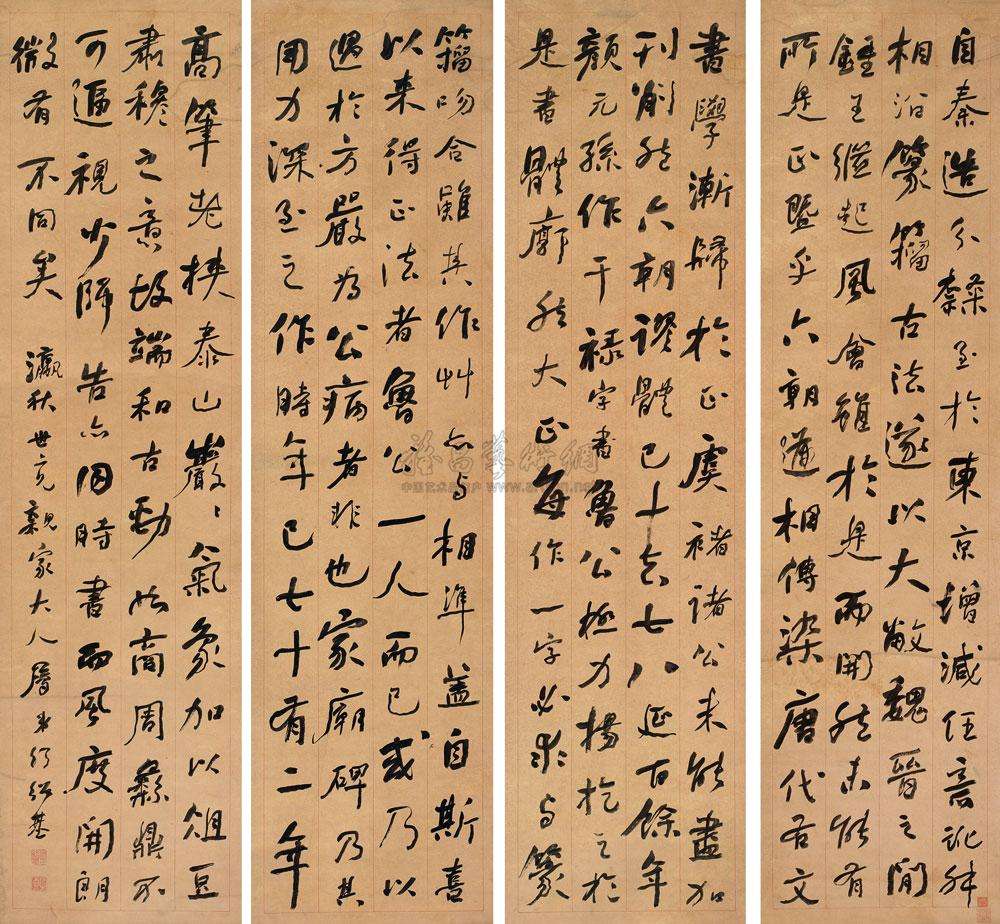 自秦造分隸至於東京增減任意訛舛
相沿篆籀古法遂以大敝魏晉之閒
鍾王繼起風會雖於是而開然未能有
所是正暨乎六朝遞相傳染唐代右文
書學漸歸於正虞褚諸公未能盡加
刊削然六朝謬體已十去七八延百餘年
顏元孫作干祿字書魯公極力揚扢之於
是書體廓然大正每作一字必求與篆
籀吻合雖其作艸亦與相準蓋自斯喜
以來得正法者魯公一人而已或乃以
過於方嚴為公病者非也家廟碑乃其
用力深至之作時年已七十有二年
高筆老挾泰山巖〻氣象加以俎豆
肅穆之意故端和古勁如商周彝鼎不
可逼視少師告亦同時書而風度開朗
微有不同矣 瀛秋世兄親家大人屬 弟何紹基